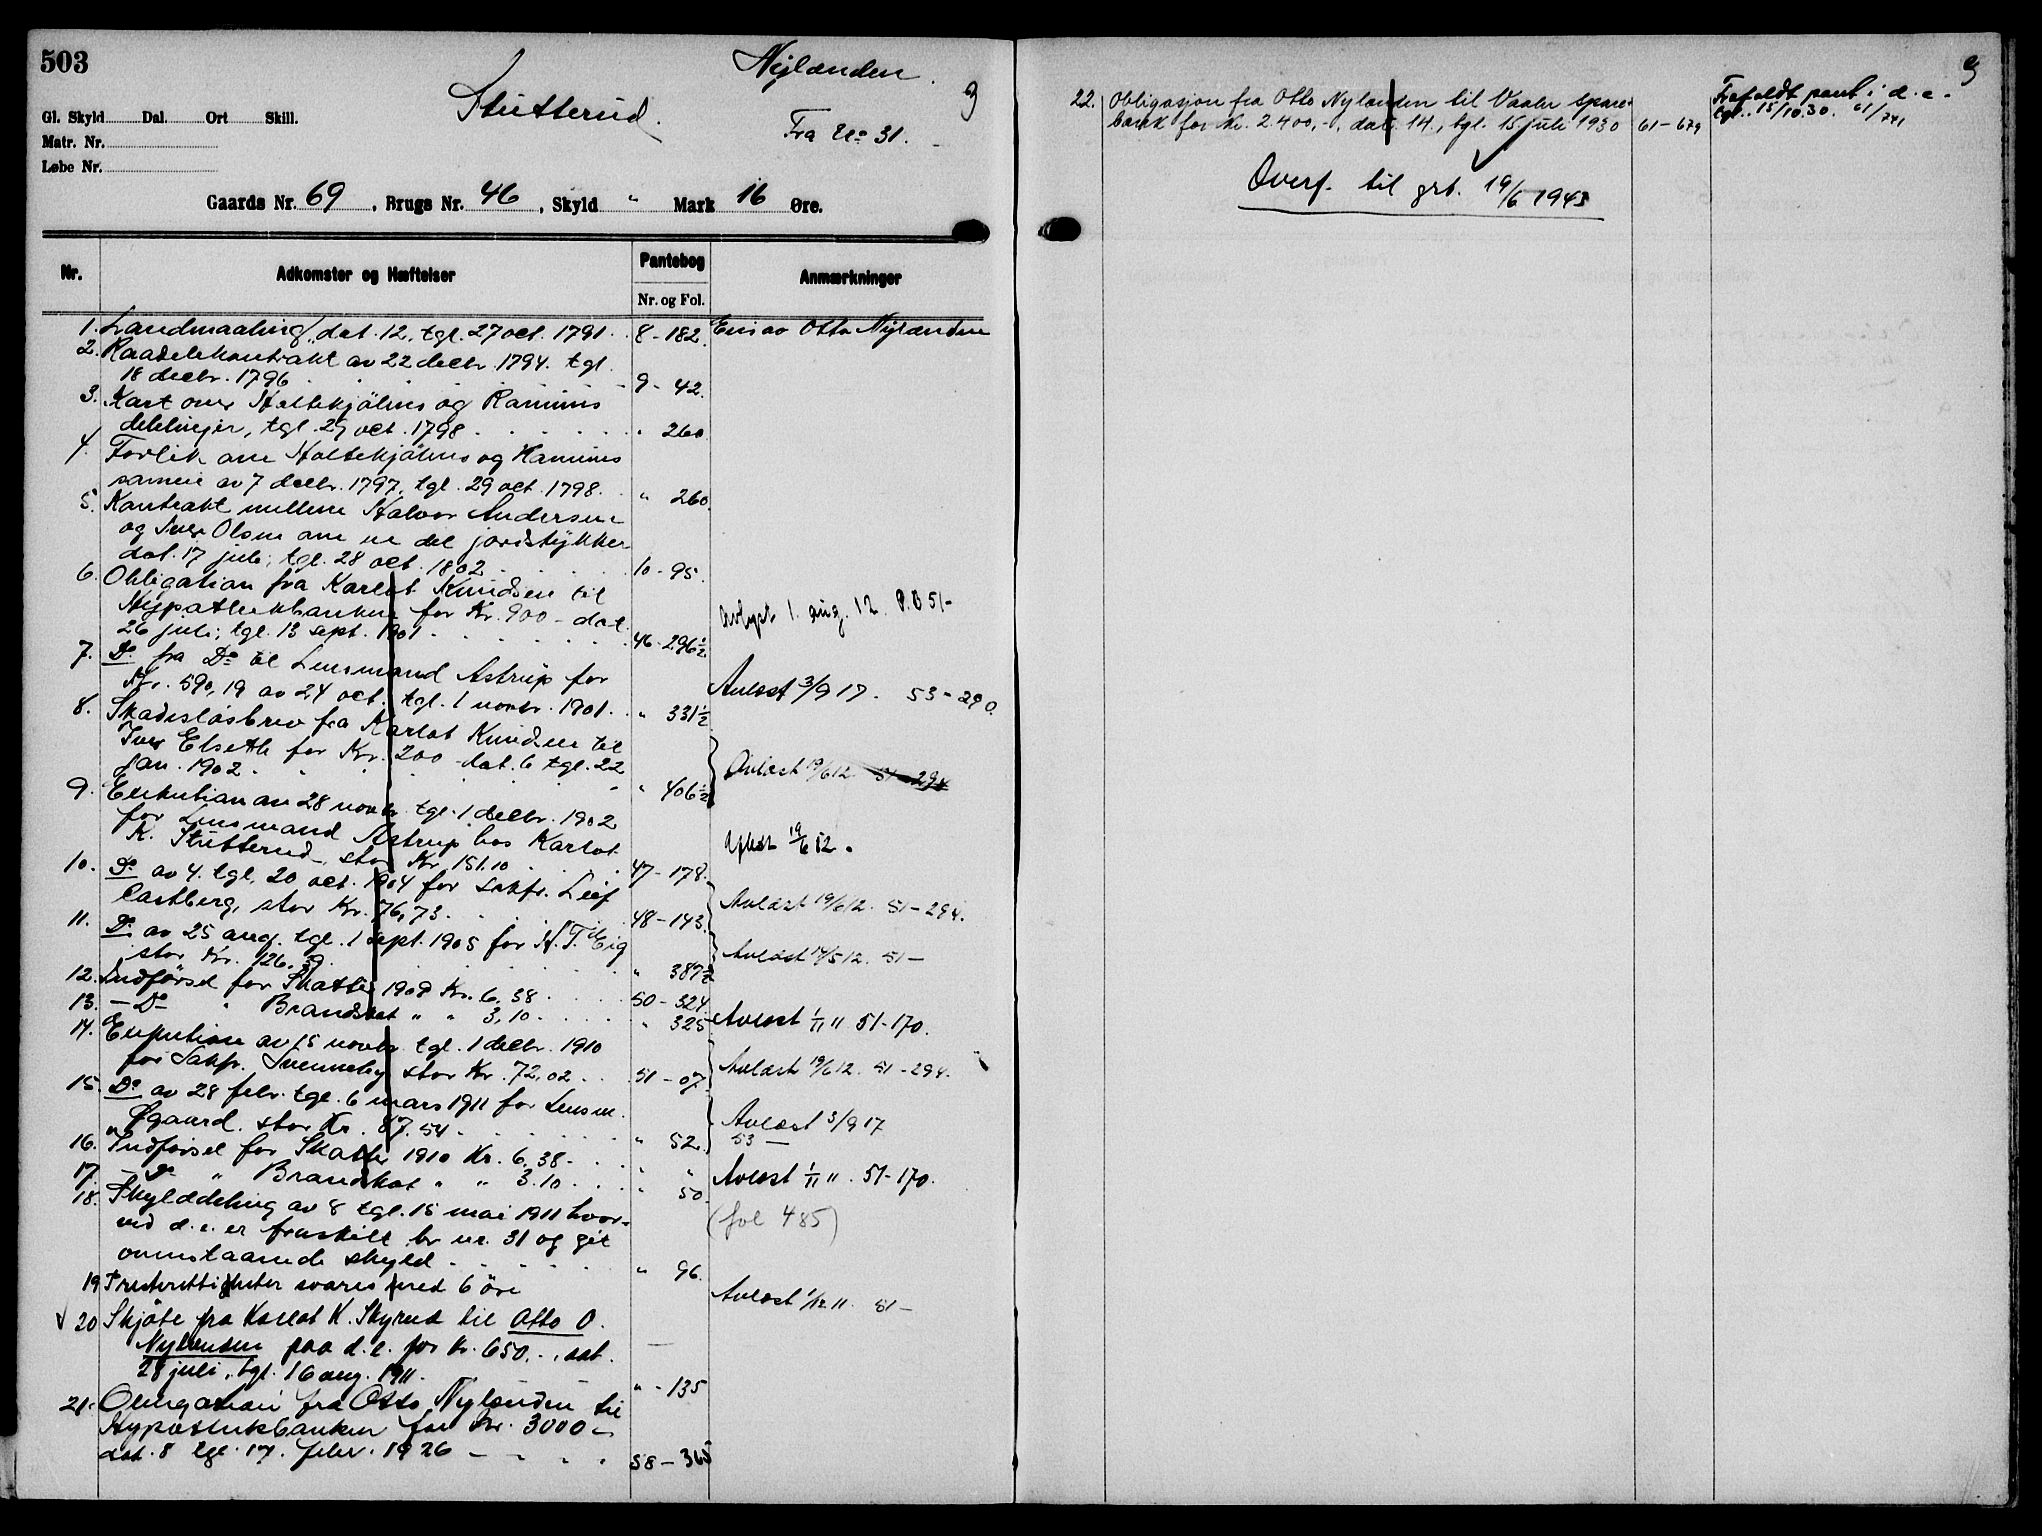 503
Nylænden.
Stutterud.
Fra No 31.
Gl. Skyld Dal. Ort Skill.
Matr. Nr.
Løbe Nr.
Gaards Nr. 69, Brugs Nr. 46, Skyld " Mark 16 Øre.
Nr. Adkomster og Hæftelser Pantebog Nr. og Fol. Anmærkninger
1. Landmaaling, dat. 12, tgl. 27 oct. 1791. 8 - 182. Eies av Otto Nylænden
2. Raadelekontrakt av 22 decbr. 1794. tgl.
18 decbr. 1796 9 - 42.
3. Kart over Holtekjølens og Ramums
delelinjer, tgl. 29 oct. 1798 " 260
4. Forlik om Holtekjølens og Hamums
sameie av 7 decbr. 1797, tgl. 29 oct. 1798. " 260.
5. Kontrakt mellem Halvor Andersen
og Iver Olsen om en del jordstykker
dat. 17 juli; tgl. 28 oct. 1802 10 - 95.
6. Obligation fra Karlot Knudsen til
Hypothekbanken for Kr. 900 - dat.
26 juli; tgl. 13 sept. 1901. 46 - 296½ Avlyst 1. aug. 12. P.B 51-
7. Do fra Do til Lensmand Astrup for
Kr. 590,19 av 24 oct. tgl. 1 novbr. 1901. " 331½ Avløst 3/9 17. 53 - 290.
8. Skadesløsbrev fra Karlot Knudsen til
Iver Elseth for Kr. 200 dat. 6 tgl. 22
jan. 1902. " 406½ Avløst 19/6 12. 51 - 294
9. Exekution av 28 novbr. tgl. 1 decbr. 1902
for Lensmand Astrup hos Karlot
K. Stutterud, stor Kr. 151.10 47 - 178. Afløst 19/6 12.
10. Do av 4. tgl. 20 oct. 1904 for sakfr. Leif
Castberg, stor Kr. 76,73. 48 - 143. Avløst 19/6 12. 51 - 294.
11. Do av 25 aug. tgl. 1 sept. 1905 for H. T. Eig
stor Kr. 126.39. " 387½ Avløst 14/5 12. 51 -
12. Indførsel for Skatter 1909 Kr. 6,38 50 - 324.
13. - Do " Brandskat " " 3,10. " 325 Avløst 1/11 11 51-170.
14. Exekution av 15 novbr. tgl. 1 decbr. 1910
for Sakfr. Svenneby stor Kr. 72,02. 51 - 07. Avløst 19/6 12. 51 - 294.
15. Do av 28 febr. tgl. 6 mars 1911 for Lensm.
Øgaard. stor Kr. 87.54. " 52. Avløst 3/9 17
53 -
16. Indførsel for Skatter 1910 Kr. 6,38 - " "
17. - Do " Brandskat " " 3.10 " 50. Avløst 1/11 11. 51-170.
18. Skylddeling av 8 tgl. 15 mai 1911 hvor- (fol 485)
ved d. e. er fraskilt br nr. 31 og git
ovenstaaende skyld " 96.
19 Presterettigheter svares med 6 øre Avløst 1/12 11. 51 -
20 Skjøte fra Karlot K. Skyrud til Otto O.
Nylænden paa d. e. for kr. 650.-, dat.
28 juli, tgl. 16 aug. 1911. " - 135
21. Obligation fra Otto Nylænden til
Hypothekbanken for kr. 3000 -
dat. 8 tgl. 17. febr. 1926 58 - 365
22. Obligasjon fra Otto Nylænden til Vaaler spare-
bank for kr. 2.400,-, dat. 14., tgl. 15 juli 1930 61 - 679
Frafaldt pant i d. e.
tgl. 15/10.30. 61/741
Overf. til grb. 19/6 1943